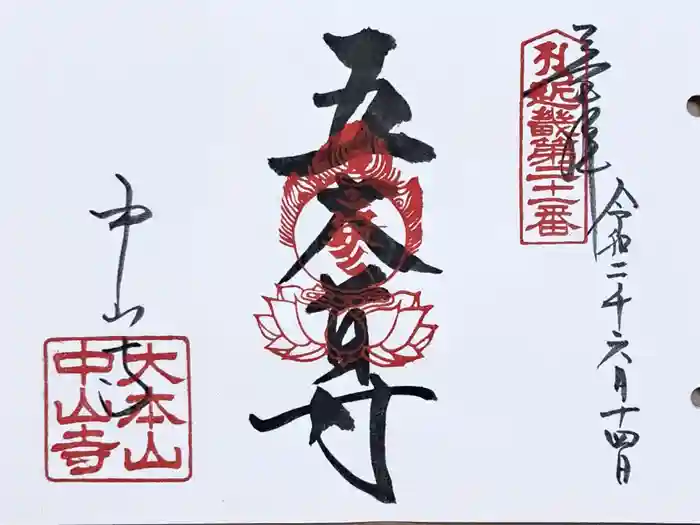 奉拝
近畿第二十一番
令和二年六月十四日
五大尊
中山寺
大本山
中山寺